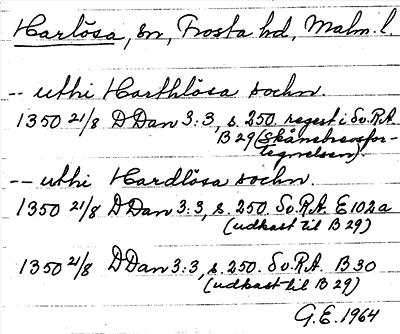 Harlösa, sn, Frosta hd, Malm. l.
-- uthi Harthlösa sochn.
1350 21/8 DDan 3:3, s. 250. regest i Sv.R.A.
B 29 (Skånebrevsfor-
tegnelsen).
-- uthi Hardlösa sochn.
1350 21/8 DDan 3:3, s. 250. Sv.R.A. E 102a
(udkast til B 29)
1350 21/8 DDan 3:3, s. 250. Sv.R.A. B 30
(udkast til B 29)
G.E. 1964